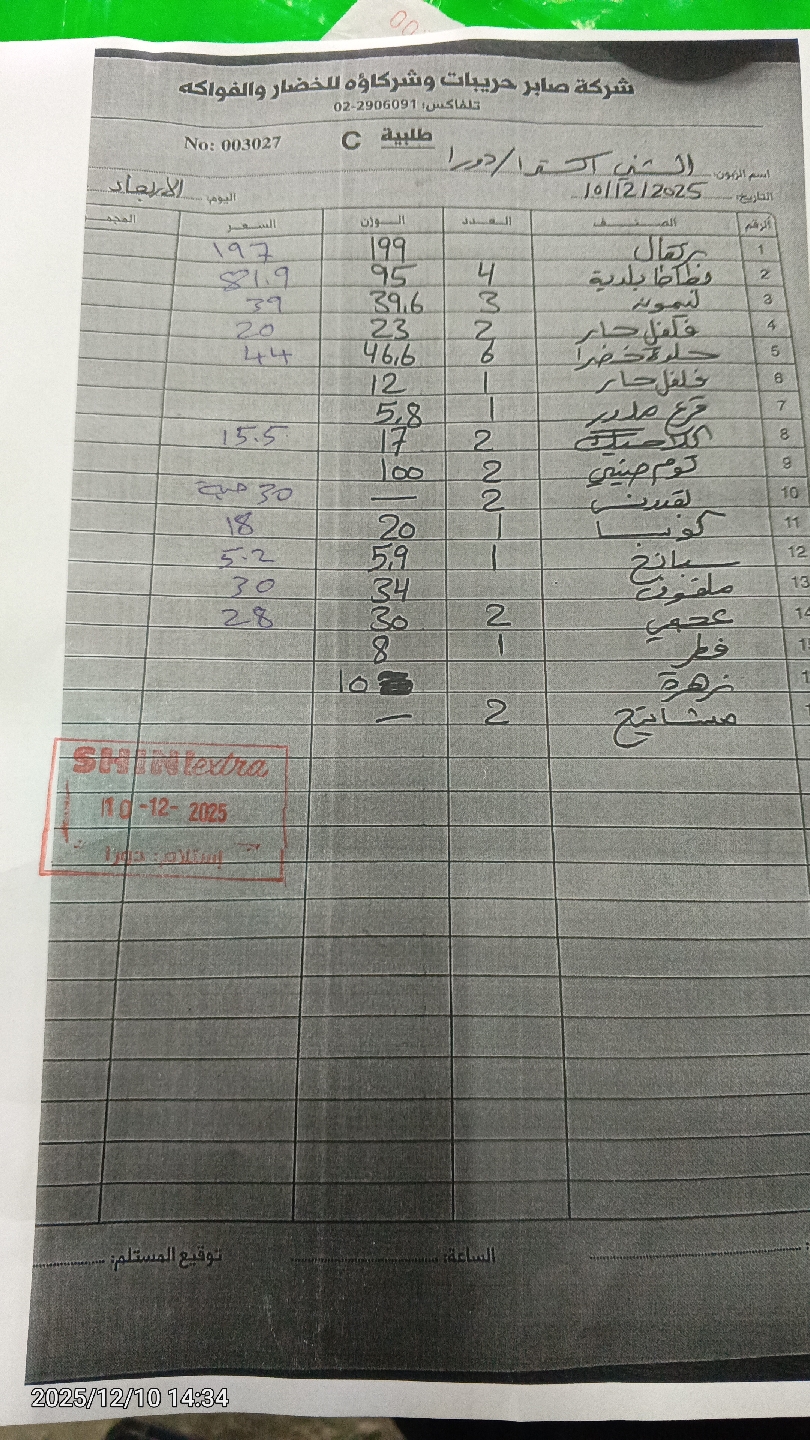 شركة صابر حريبات وشركاؤه للخضار والفواكه
تلفاكس: 02-2906091
No: 003027 طلبية C
اسم الزبون: الشني اكسترا/دورا
التاريخ: 10/12/2025 اليوم: الاربعاء
الرقم الصنف العدد الوزن السعر
1 برتقال 199 197
2 بطاطا بلدية 4 95 81.9
3 ليمون 3 39.6 39
4 فلفل حار 2 23 20
5 خضرا 6 46,6 44
6 فلفل حار 1 12
7 قرع مدور 1 5,8
8 2 17 15.5
9 توم صيني 2 100
10 بقدونس 2 — 30 حبة
11 كوسا 1 20 18
12 سبانخ 1 5,9 5.2
13 ملفوف 34 30
14 عجمي 2 30 28
فطر 1 8
زهرة 10
2 —
SHINI extra
10-12-2025
إستلام: دورا
توقيع المستلم: الساعة:
2025/12/10 14:34